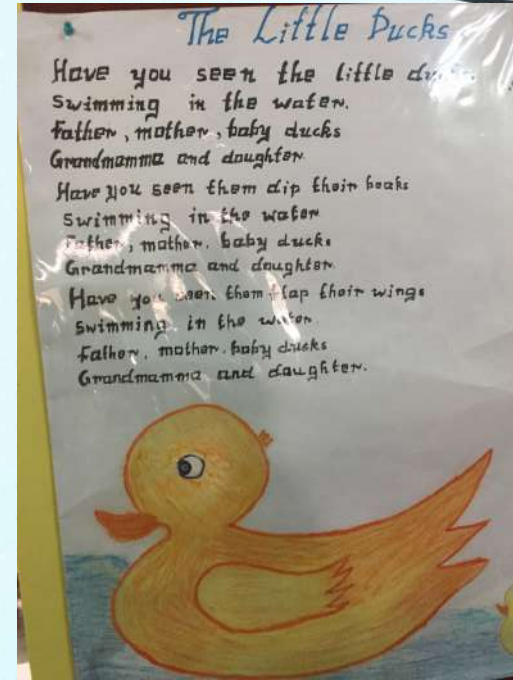 The Little Ducks
Have you seen the little
Swimming in the water.
Father, mother, baby ducks
Grandmamma and daughter.
Have you seen them dip their beaks
Swimming in the water
Father, mother, baby ducks
Grandmamma and daughter.
Have you seen them flap their wings
Swimming in the water.
Father, mother, baby ducks
Grandmamma and daughter.